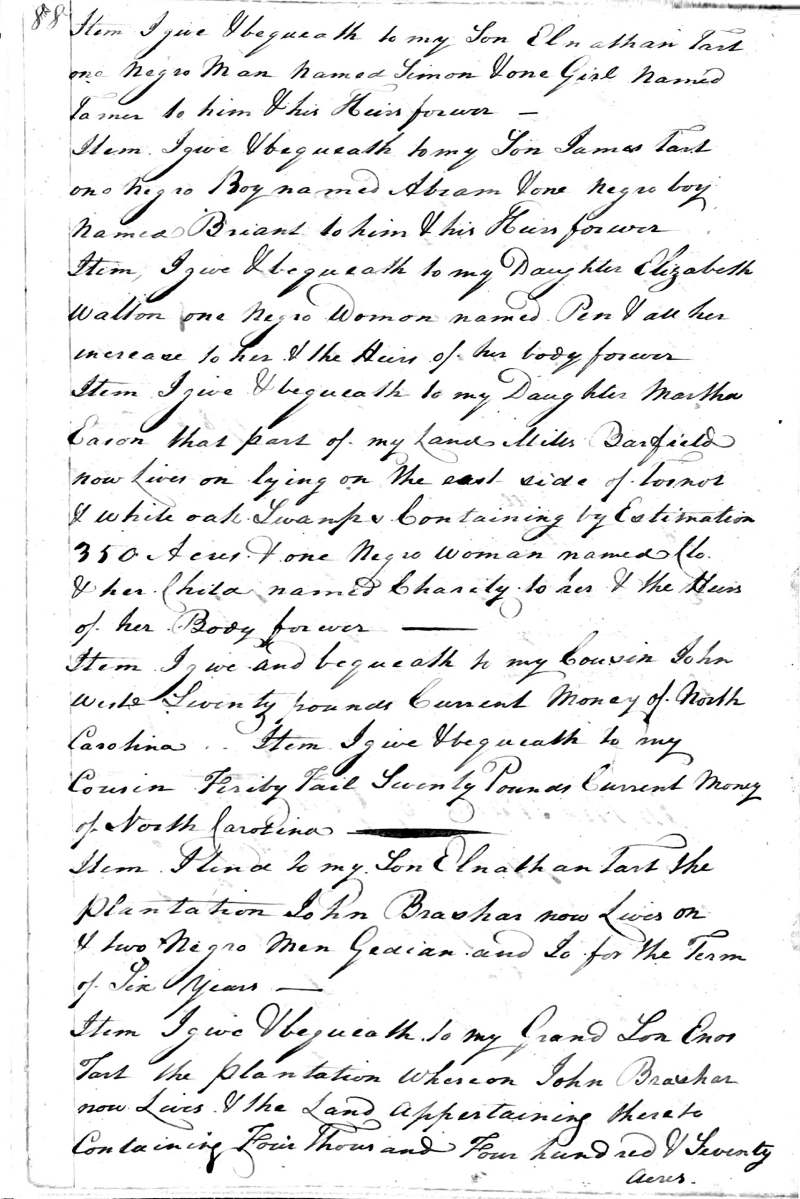 88
Item I give & bequeath to my Son Elnathan Tart
one Negro Man Named Simon & one Girl Named
Tamer to him & his Heirs forever —
Item I give & bequeath to my Son James Tart
one Negro Boy named Abram & one Negro boy
Named Briant to him & his Heirs forever
Item, I give & bequeath to my Daughter Elizabeth
Walton one Negro Womon named Pen & all her
increase to her & the Heirs of her body forever
Item I give & bequeath to my Daughter Martha
Eason that part of my Land Mills Barfield
now Lives on lying on the east side of Tosnot
& white oak Swamps Containing by Estimation
350 Acres & one Negro woman named Clo.
& her Child named Charity to her & the Heirs
of her Body forever —
Item I give and bequeath to my Cousin John
West Seventy pounds Current Money of North
Carolina .. Item I give & bequeath to my
Cousin Feriby Tail Seventy Pounds Current Money
of North Carolina —
Item I lend to my Son Elnathan Tart the
plantation John Brashar now Lives on
& two Negro Men Gedian and Jo for the Term
of Six Years —
Item I give & bequeath to my Grand Son Enos
Tart the plantation Whereon John Brashar
now Lives & the Land Appertaining thereto
Containing Four Thousand Four hundred & Seventy
Acres.